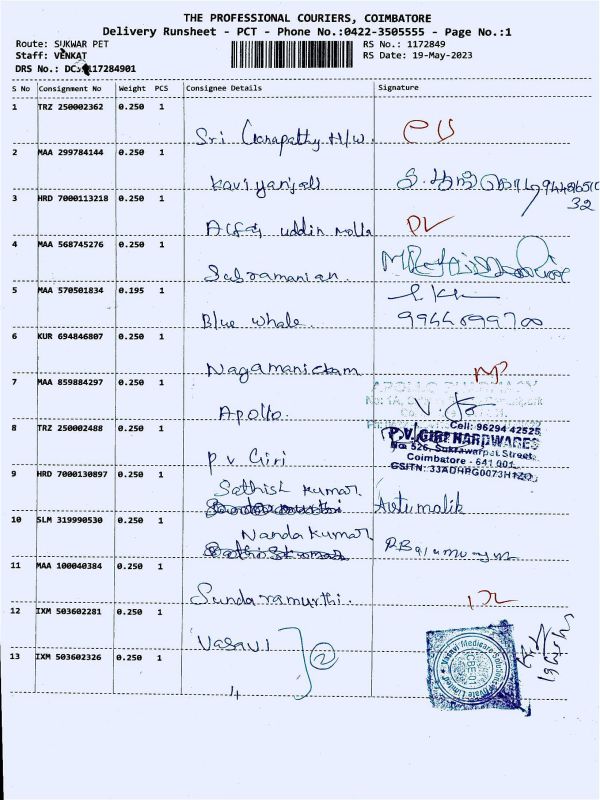 THE PROFESSIONAL COURIERS, COIMBATORE
Delivery Runsheet - PCT - Phone No.:0422-3505555 - Page No.:1
Route: SUKWAR PET
RS No.: 1172849
Staff: VENKAT
RS Date: 19-May-2023
DRS No.: DC 117284901
S No Consignment No Weight PCS Consignee Details Signature
1 TRZ 250002362 0.250 1
Sri Ganapathy H/w.
2 MAA 299784144 0.250 1
Kaviyanjali
3 HRD 7000113218 0.250 1
32
uddin Molla
4 MAA 568745276 0.250 1
Subramanian.
5 MAA 570501834 0.195 1
Blue whale.
6 KUR 694846807 0.250 1
Nagamanickam
7 MAA 859884297 0.250 1
APOLLO PHARMACY
Apollo.
8 TRZ 250002488 0.250 1
Cell: 96294 42525
P.V. GIRI HARDWARES
No 526, Sukrawarpet Street,
Coimbatore - 641 001.
GSITN: 33ADHPG0073H1ZO
P.V Giri
9 HRD 7000130897 0.250 1
Sathish Kumar
10 SLM 319990530 0.250 1
Nanda Kumar
11 MAA 100040384 0.250 1
Sundaramurthi.
12 IXM 503602281 0.250 1
Vasavi
2
Vasavi Medicare Solutions Private Limited
CBE-01
13 IXM 503602326 0.250 1